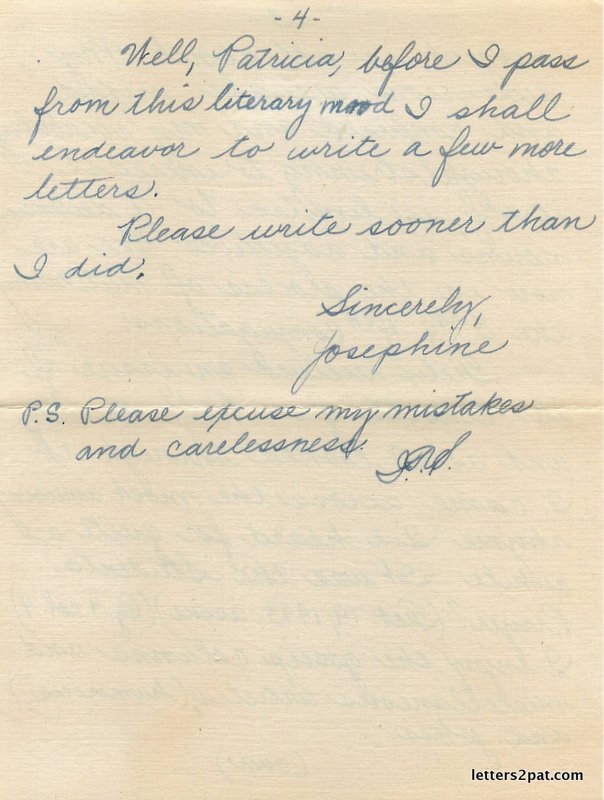 - 4 -
Well, Patricia, before I pass
from this literary mood I shall
endeavor to write a few more
letters.
Please write sooner than
I did.
Sincerely,
Josephine
P.S. Please excuse my mistakes
and carelessness.
letters2pat.com